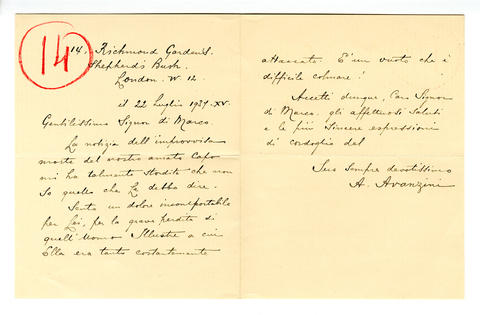 14
14, Richmond Gardens.
Shepherd's Bush
London. W. 12.
il 22 Luglio 1937. XV.
Gentilissimo Signor di Marco.
La notizia dell'improvvisa
morte del nostro amato Capo
mi ha talmente stordito che non
so quello che Le debba dire.
Sento un dolore insopportabile
per Lei, per la grave perdita di
quell'Uomo Illustre a cui
Ella era tanto costantemente
attaccato. E'un vuoto che è
difficile colmare!
Accetti dunque, Caro Signor
di Marco, gli affettuosi saluti
e le più sincere espressioni
di cordoglio del
Suo sempre devotissimo
A. Avanzini